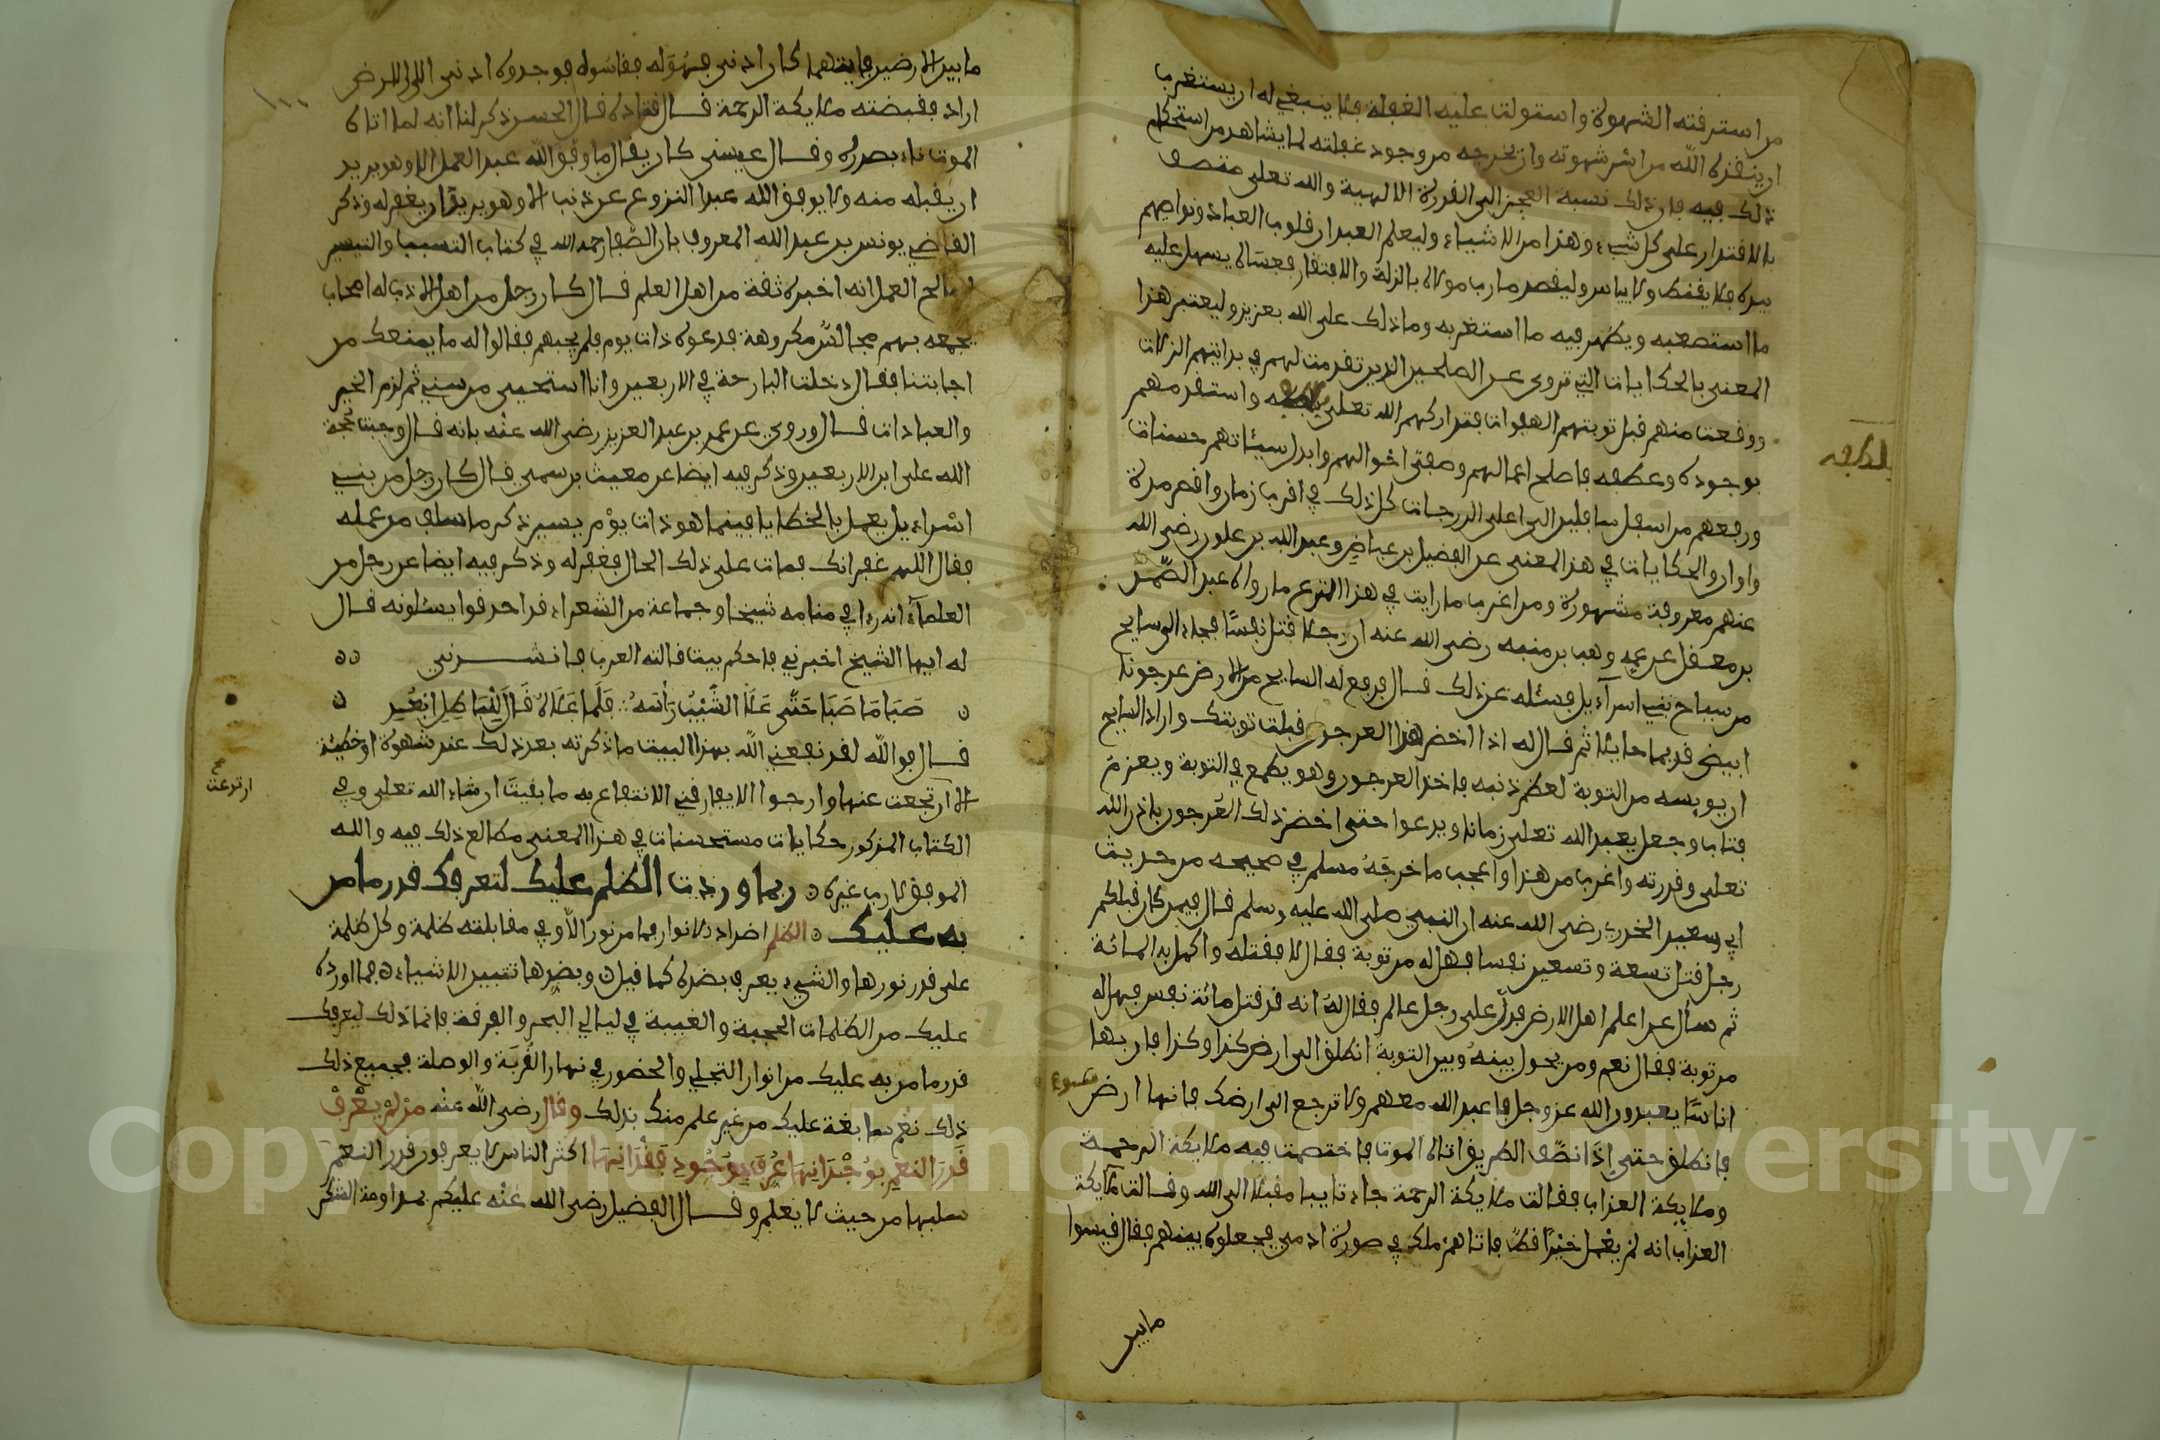 من استرقته الشهوة واستولت عليه الغفلة فلا ينبغي له ان يستغرب
ان ينقذه الله من اسر شهوته وان يخرجه من وجود غفلته لما يشاهد من استحكام
ذلك فيه فان ذلك نسبة العجز الى القدرة الالهية والله تعلى متصف
بالاقتدار على كل شيء وهذا من الاشياء وليعلم العبد ان قلوب العباد ونواصيهم
بيده فلا يقنط ولا يياس وليقصد باب مولاه بالذلة والافتقار فعساه يسهل عليه
ما استصعبه ويظهر فيه ما استغربه وما ذلك على الله بعزيز وليعتبر هذا
المعنى بالحكايات التي تروى عن الصلحين الذين تقدمت لهم في بدايتهم الزلات
ووقعت منهم قبل توبتهم الهفوات فتداركهم الله تعلى بلطفه واستنقذهم
بلطفه
بوجوده وعطفه فاصلح اعمالهم وصفى احوالهم وابدل سيئاتهم حسنات
ورفعهم من اسفل سافلين الى اعلى الدرجات كل ذلك في اقرب زمان واقصر مدة
واوان والحكايات في هذا المعنى عن الفضيل بن عياض وعبد الله بن علوان رضي الله
عنهم معروفة مشهورة ومن اغرب ما رايت في هذا النوع ما رواه عبد الصمد
بن معقل عن عمه وهب بن منبه رضي الله عنه ان رجلا قتل نفسا فجاء الى سايح
من سياح بني اسرآءيل فسئله عن ذلك فـال فرفع له السايح من الارض عرجونا
ابيض قديما حايئا ثم فـال له اذا اخضر هذا العرجون قبلت توبتك واراد السايح
ان يويسه من التوبة لعظم ذنبه فاخذ العرجون وهو يطمع في التوبة ويعزم
فتاب وجعل يعبد الله تعلى زمانا ويدعوا حتى اخضر ذلك العرجون باذن الله
تعلى وقدرته واغرب من هذا واعجب ما خرجه مسلم في صحيحه من حديث
ابي سعيد الخدري رضي الله عنه ان النبي صلى الله عليه وسلم فـال فيمن كان قبلكم
رجل قتل تسعة وتسعين نفسا فهل له من توبة فقال لا فقتله واكمل به المائة
ثم سأل عن اعلم اهل الارض فدل على رجل عالم فقال له انه قد قتل مائة نفس فهل له
من توبة فقال نعم ومن يحول بينه وبين التوبة انطلق الى ارض كذا وكذا فان بها
اناسا يعبدون الله عز وجل فاعبد الله معهم ولا ترجع الى ارضك فانها ارض سوء
فانطلق حتى اذا نصف الطريق اتاه الموت فاختصمت فيه ملايكة الرحمة
وملايكة العذاب فقالت ملايكة الرحمة جاء تايبا مقبلا الى الله وفـالت ملايكة
العذاب انه لم يعمل خيرا قط فاتاهم ملك في صورة ادمي فجعلوه بينهم فقال قيسوا
ما بين
ما بين الارضين فايتهما كان ادنى فهو له فقاسوه فوجدوه ادنى الى الارض التي
اراد فقبضته ملايكة الرحمة فـال قتادة فـال الحسن ذكر لنا انه لما اتاه
الموت ناء بصدره وفـال عيسى كان يقال ما وفق الله عبدا لعمل الا وهو يريد
ان يقبله منه ولا يوفق الله عبدا النزوع عن ذنب الا وهو يريد ان يغفر له وذكر
القاضي يونس بن عبد الله المعروف بابن الصفار رحمه الله في كتاب التسبيب والتيسير
لصالح العمل انه اخبره ثقة من اهل العلم فـال كـان رجل من اهل الادب له اصحاب
يجمعه بهم مجالس مكروهة فدعوه ذات يوم فلم يجبهم فقالوا له ما يمنعك من
اجابتنا فقال دخلت البارحة في الاربعين وانا استحيي من سني ثم لزم الخير
والعبادات فـال وروي عن عمر بن عبد العزيز رضي الله عنه بانه فـال وجبت حجة
الله على ابن الاربعين وذكر فيه ايضا عن مغيث بن سمي فـال كـان رجل من بني
اسراءيل يعمل بالخطايا فبينما هو ذات يوم يسير ذكر ما سلف من عمله
فقال اللهم غفرانك فمات على ذلك الحال فغفر له وذكر فيه ايضا عن رجل من
العلماء انه راى في منامه شيخا وجماعة من الشعراء قد احدقوا يسئلونه فـال
له ايها الشيخ اخبرني باحكم بيت قالته العرب فانشدني
صبا ما صبا حتى علا الشيب رأسه فلما علاه قال للباطل ابعد
فـال فوالله لقد نفعني الله بهذا البيت ما ذكرته بعد ذلك عند شهوة او خطيئة
الا ارتجعت عنها وارجوا الا يفارقني الانتفاع به ما بقيت ان شاء الله تعلى وفي
ارتدعت
الكتاب المذكور حكايات مستحسنات في هذا المعنى مطالع ذلك فيه والله
الموفق لا رب غيره ربما وردت الظلم عليك لتعرفك قدر ما من
به عليك الظلم اضداد الانوار فما من نور الا وفي مقابلته ظلمة وكل ظلمة
على قدر نورها والشيء يعرف بضده كما قيل وبضدها تتبين الاشياء فما اورده
عليك من الظلمات الحجبة والغيبة في ليالي البحر والفرقة فانما ذلك ليعرفك
قدر ما من به عليك من انوار التجلي والحضور في نهار القربة والوصلة فجميع ذلك
ذلك نعم سابغة عليك من غير علم منك بذلك وقال رضي الله عنه من لم يعرف
قدر النعم بوجدانها عرف بوجود فقدانها اكثر الناس لا يعرفون قدر النعم
سلبها من حيث لا يعلم وفـال الفضيل رضي الله عنه عليكم بمداومة الشكر
Copyright © King Saud University